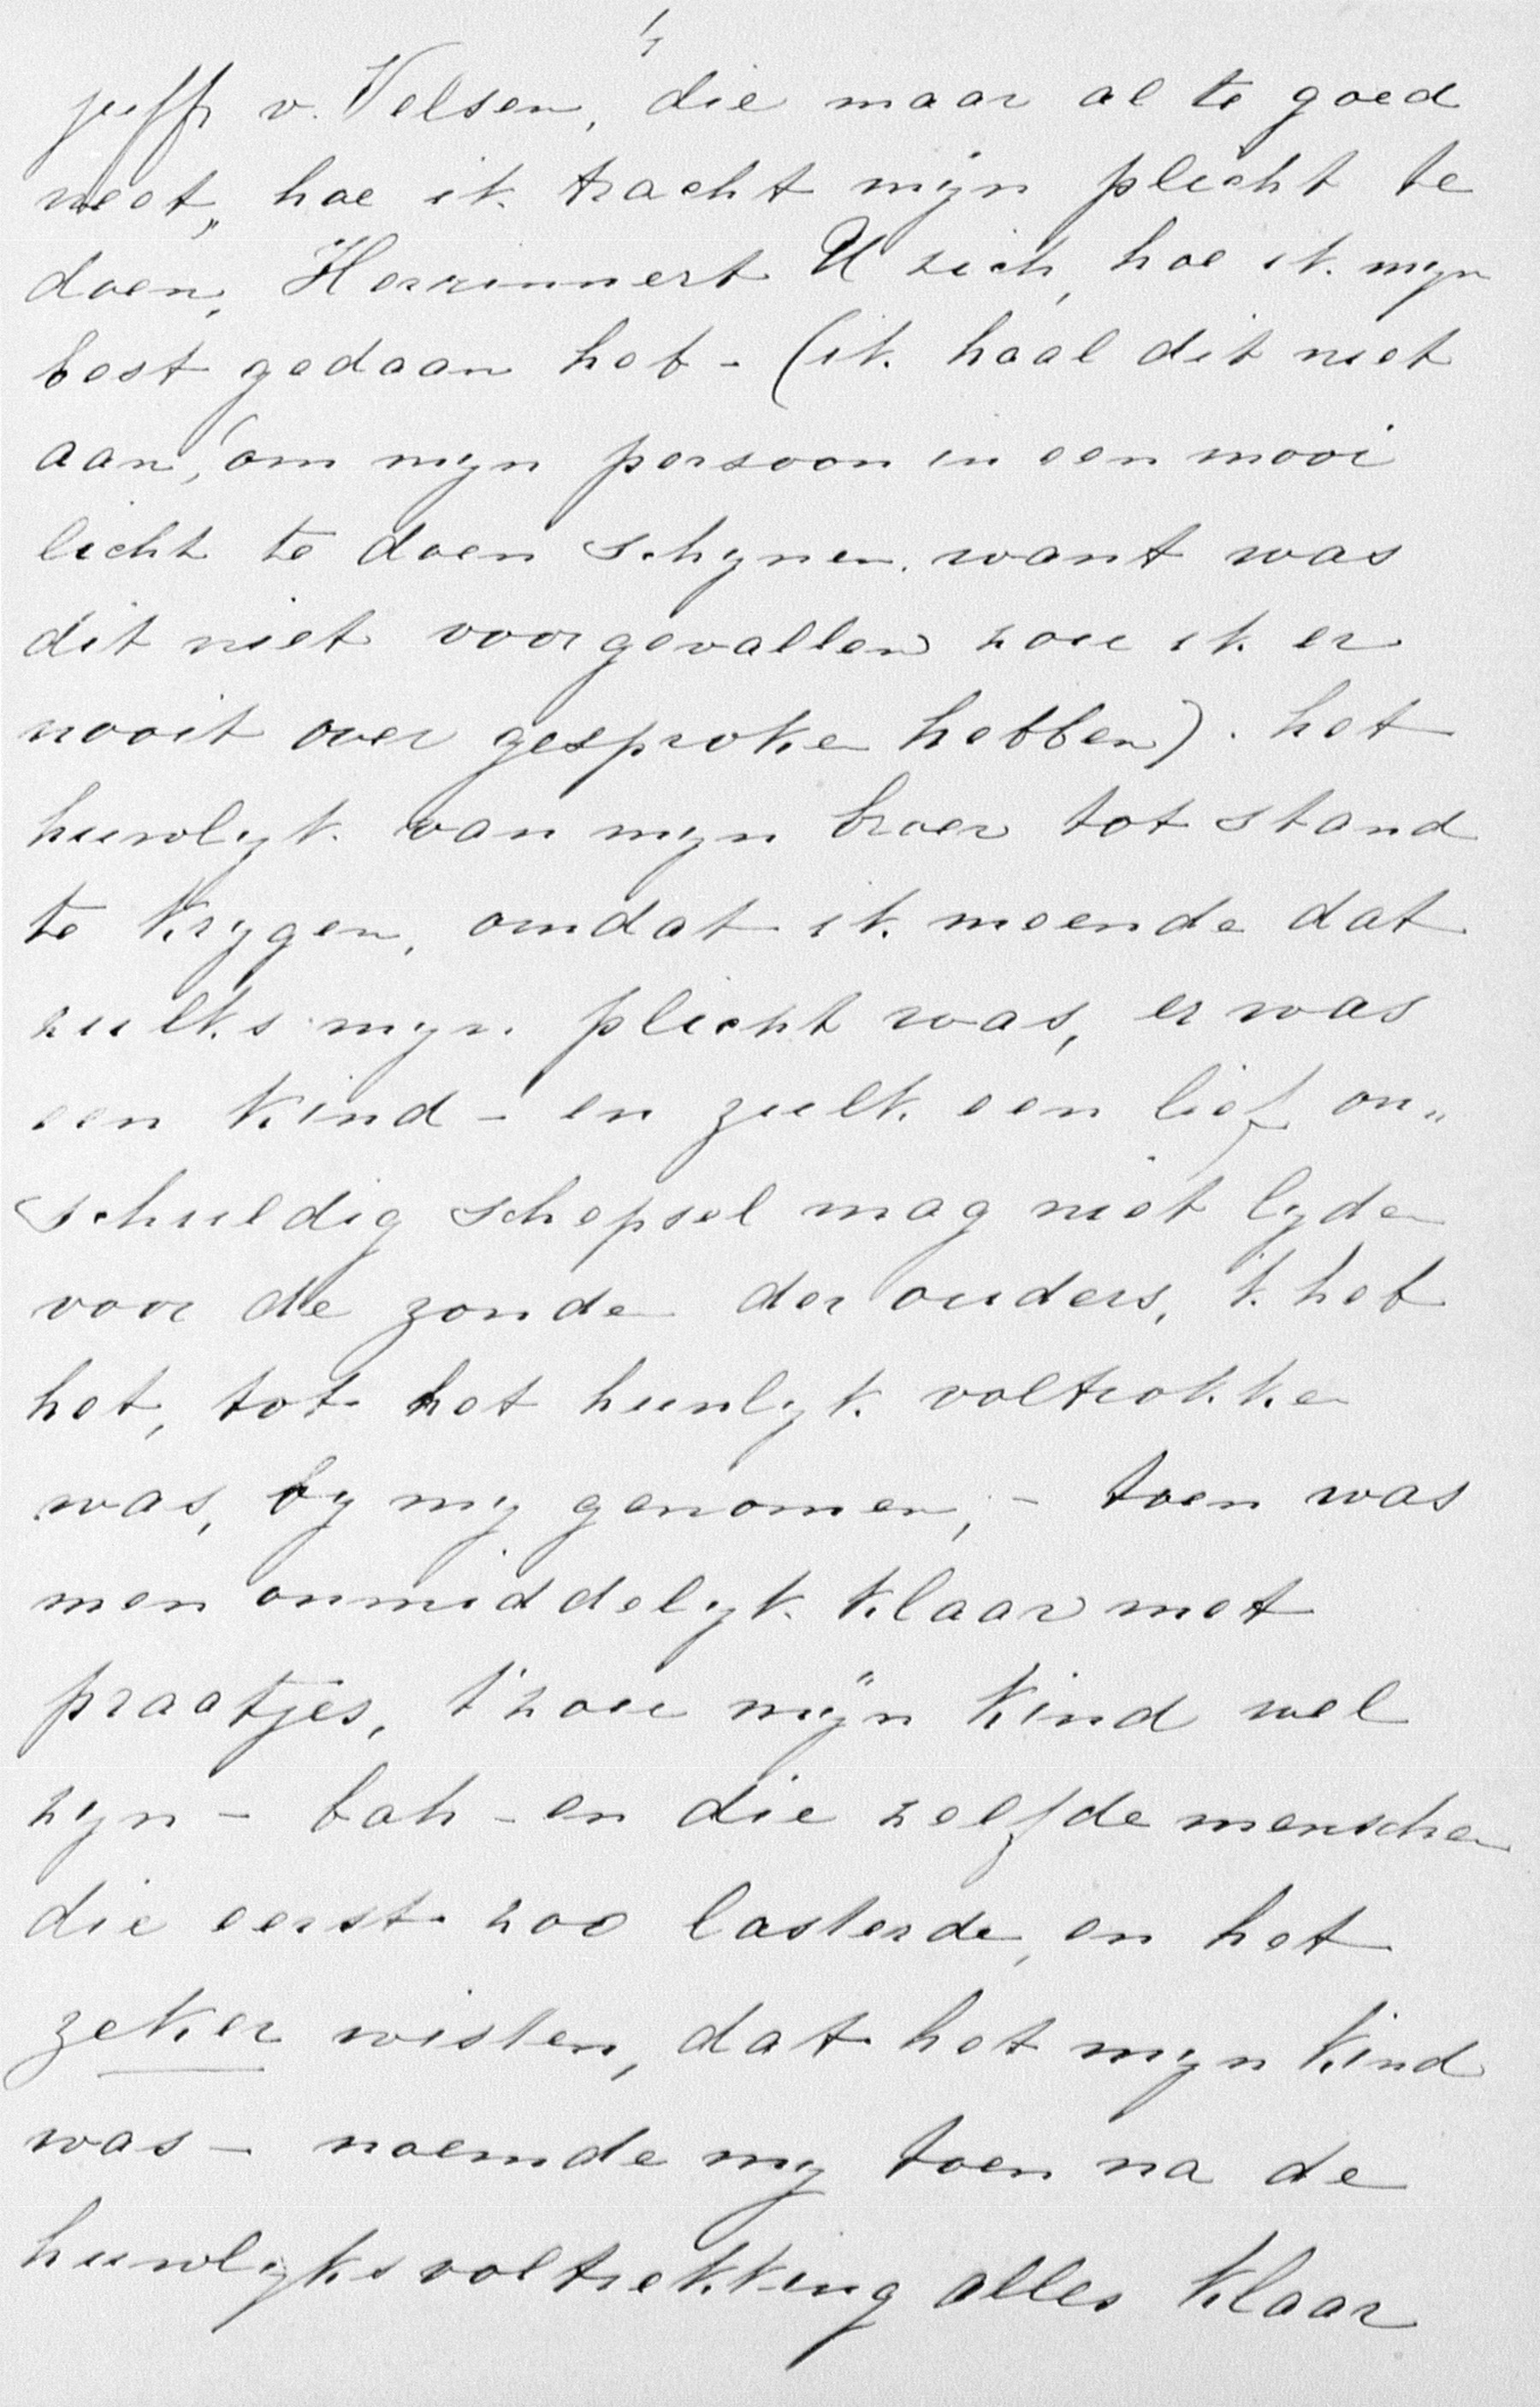 juffr v. Velsen, die maar al te goed
weet, hoe ik tracht mijn plicht te
doen, Herrinnert U zich, hoe ik mijn
best gedaan heb - (ik haal dit niet
aan, om mijn persoon in een mooi
licht te doen schijnen. want was
dit niet voorgevallen zou ik er
nooit over gesproke hebben). het
huwlijk van mijn broer tot stand
te krijgen, omdat ik meende dat
zulks mijn plicht was, er was
een kind - en zulk een lief on„
schuldig schepsel mag niet lijden
voor de zonde der ouders, 'k heb
het, tot het huwlijk voltrokke
was, bij mij genomen, - toen was
men onmiddelijk klaar met
praatjes, t' zou mijn kind wel
zijn - bah - en die zelfde mensche
die eerst zoo lasterde, en het
zeker wisten, dat het mijn kind
was - noemde mij toen na de
huwlijksvoltrekking alles klaar